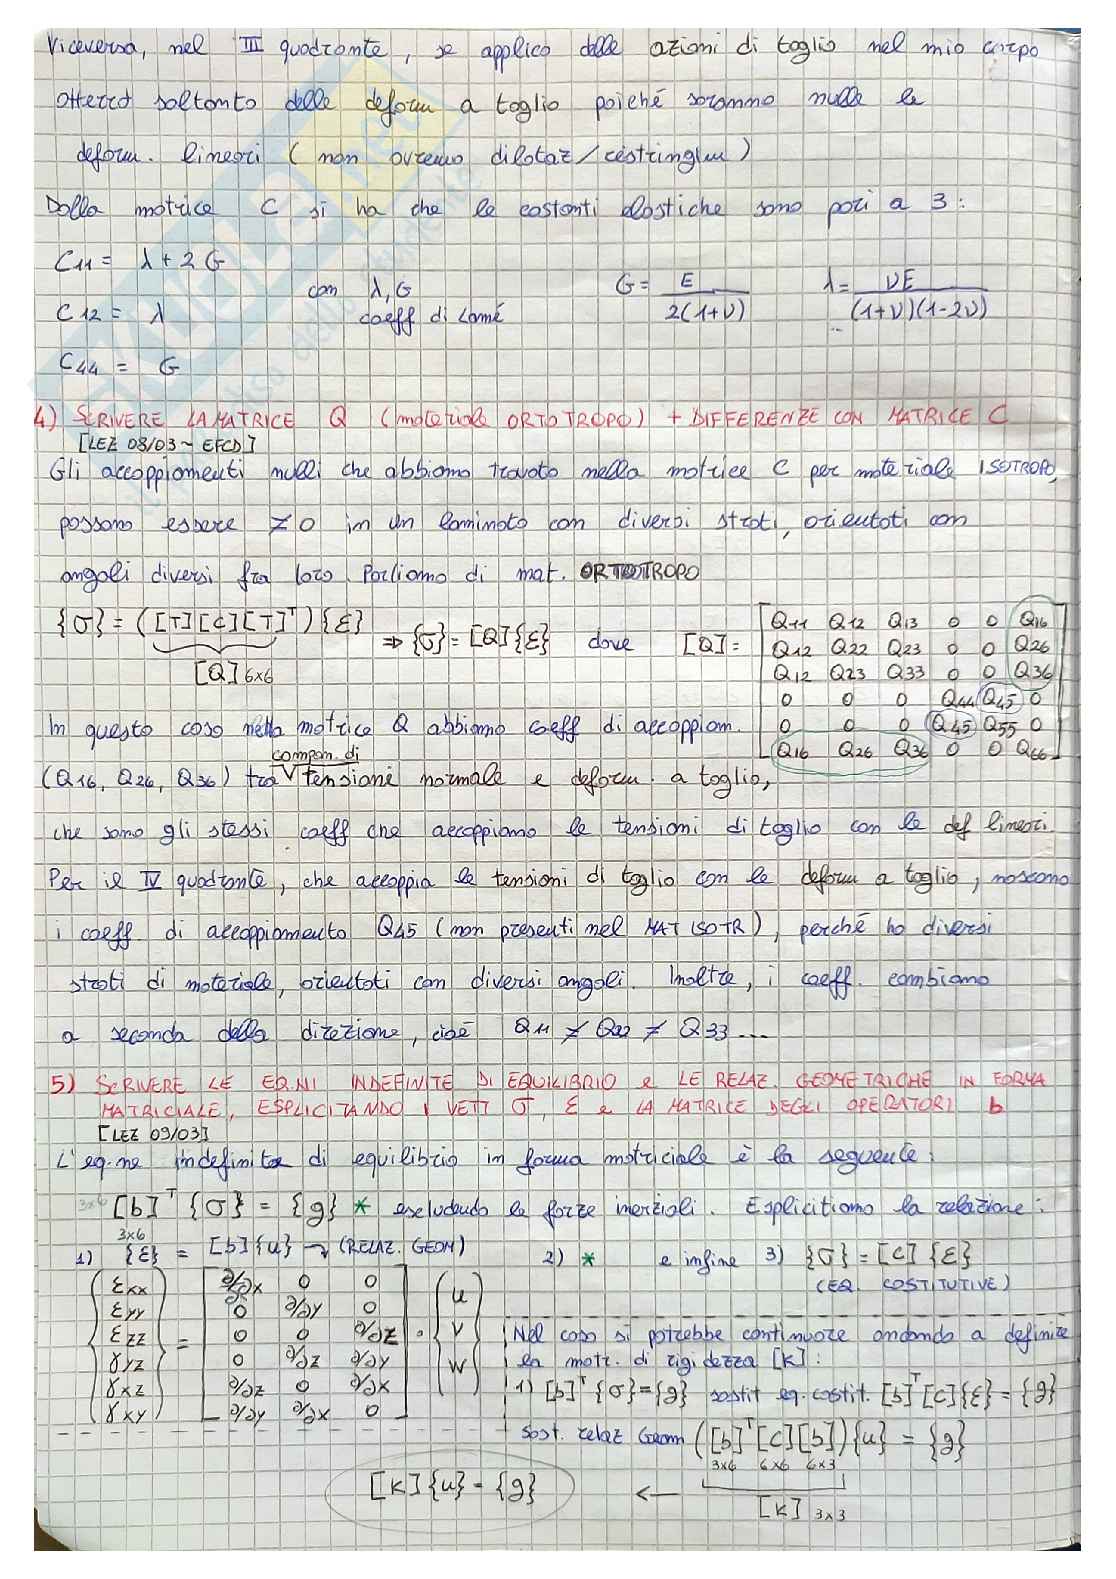 Viceversa, nel III quadrante, se applico delle azioni di taglio nel mio corpo
otterrò soltanto delle deform a taglio poiché saranno nulle le
deform. lineari (non avremo dilataz/restringim)
Dalla matrice C si ha che le costanti elastiche sono pari a 3:
C11 = λ + 2G
C12 = λ
con λ, G
coeff di Lamé
G = E / 2(1+ν)
λ = νE / (1+ν)(1-2ν)
C44 = G
4) SCRIVERE LA MATRICE Q (materiale ORTOTROPO) + DIFFERENZE CON MATRICE C
[LEZ 08/03 ~ EFCD]
Gli accoppiamenti nulli che abbiamo trovato nella matrice C per materiale ISOTROPO,
possono essere ≠0 in un laminato con diversi strati, orientati con
angoli diversi fra loro. Parliamo di mat. ORTOTROPO
{σ} = ([T][C][T]ᵀ){ε} ⇒ {σ} = [Q]{ε} dove [Q] =
[Q]6x6
Q11 Q12 Q13 0 0 Q16
Q12 Q22 Q23 0 0 Q26
Q12 Q23 Q33 0 0 Q36
0 0 0 Q44 Q45 0
0 0 0 Q45 Q55 0
Q16 Q26 Q36 0 0 Q66
In questo caso nella matrice Q abbiamo coeff di accoppiam.
compon. di
(Q16, Q26, Q36) tra V tensione normale e deform. a taglio,
che sono gli stessi coeff che accoppiano le tensioni di taglio con le def lineari.
Per il IV quadrante, che accoppia le tensioni di taglio con le deform a taglio, nascono
i coeff. di accoppiamento Q45 (non presenti nel MAT ISOTR), perché ho diversi
strati di materiale, orientati con diversi angoli. Inoltre, i coeff. cambiano
a seconda della direzione, cioè Q11 ≠ Q22 ≠ Q33 ...
5) SCRIVERE LE EQ.NI INDEFINITE DI EQUILIBRIO e LE RELAZ. GEOMETRICHE IN FORMA
MATRICIALE, ESPLICITANDO I VETT σ, ε e LA MATRICE DEGLI OPERATORI b
[LEZ 09/03]
L'eq.ne indefinita di equilibrio in forma matriciale è la seguente:
3x6 [b]ᵀ {σ} = {g} * escludendo le forze inerziali. Esplicitiamo la relazione:
3x6
1) {ε} = [b]{u} → (RELAZ. GEOM)
2) * e infine 3) {σ} = [C]{ε}
(EQ. COSTITUTIVE)
εxx ∂/∂x 0 0
εyy 0 ∂/∂y 0 u
εzz = 0 0 ∂/∂z · v
γyz 0 ∂/∂z ∂/∂y w
γxz ∂/∂z 0 ∂/∂x
γxy ∂/∂y ∂/∂x 0
Nel caso si potrebbe continuare andando a definire
la matr. di rigidezza [K]:
1) [b]ᵀ{σ}={g} sostit eq. costit. [b]ᵀ[C]{ε} = {g}
Sost. relaz Geom ([b]ᵀ[C][b]){u} = {g}
3x6 6x6 6x3
[K] 3x3
←
[K]{u} = {g}